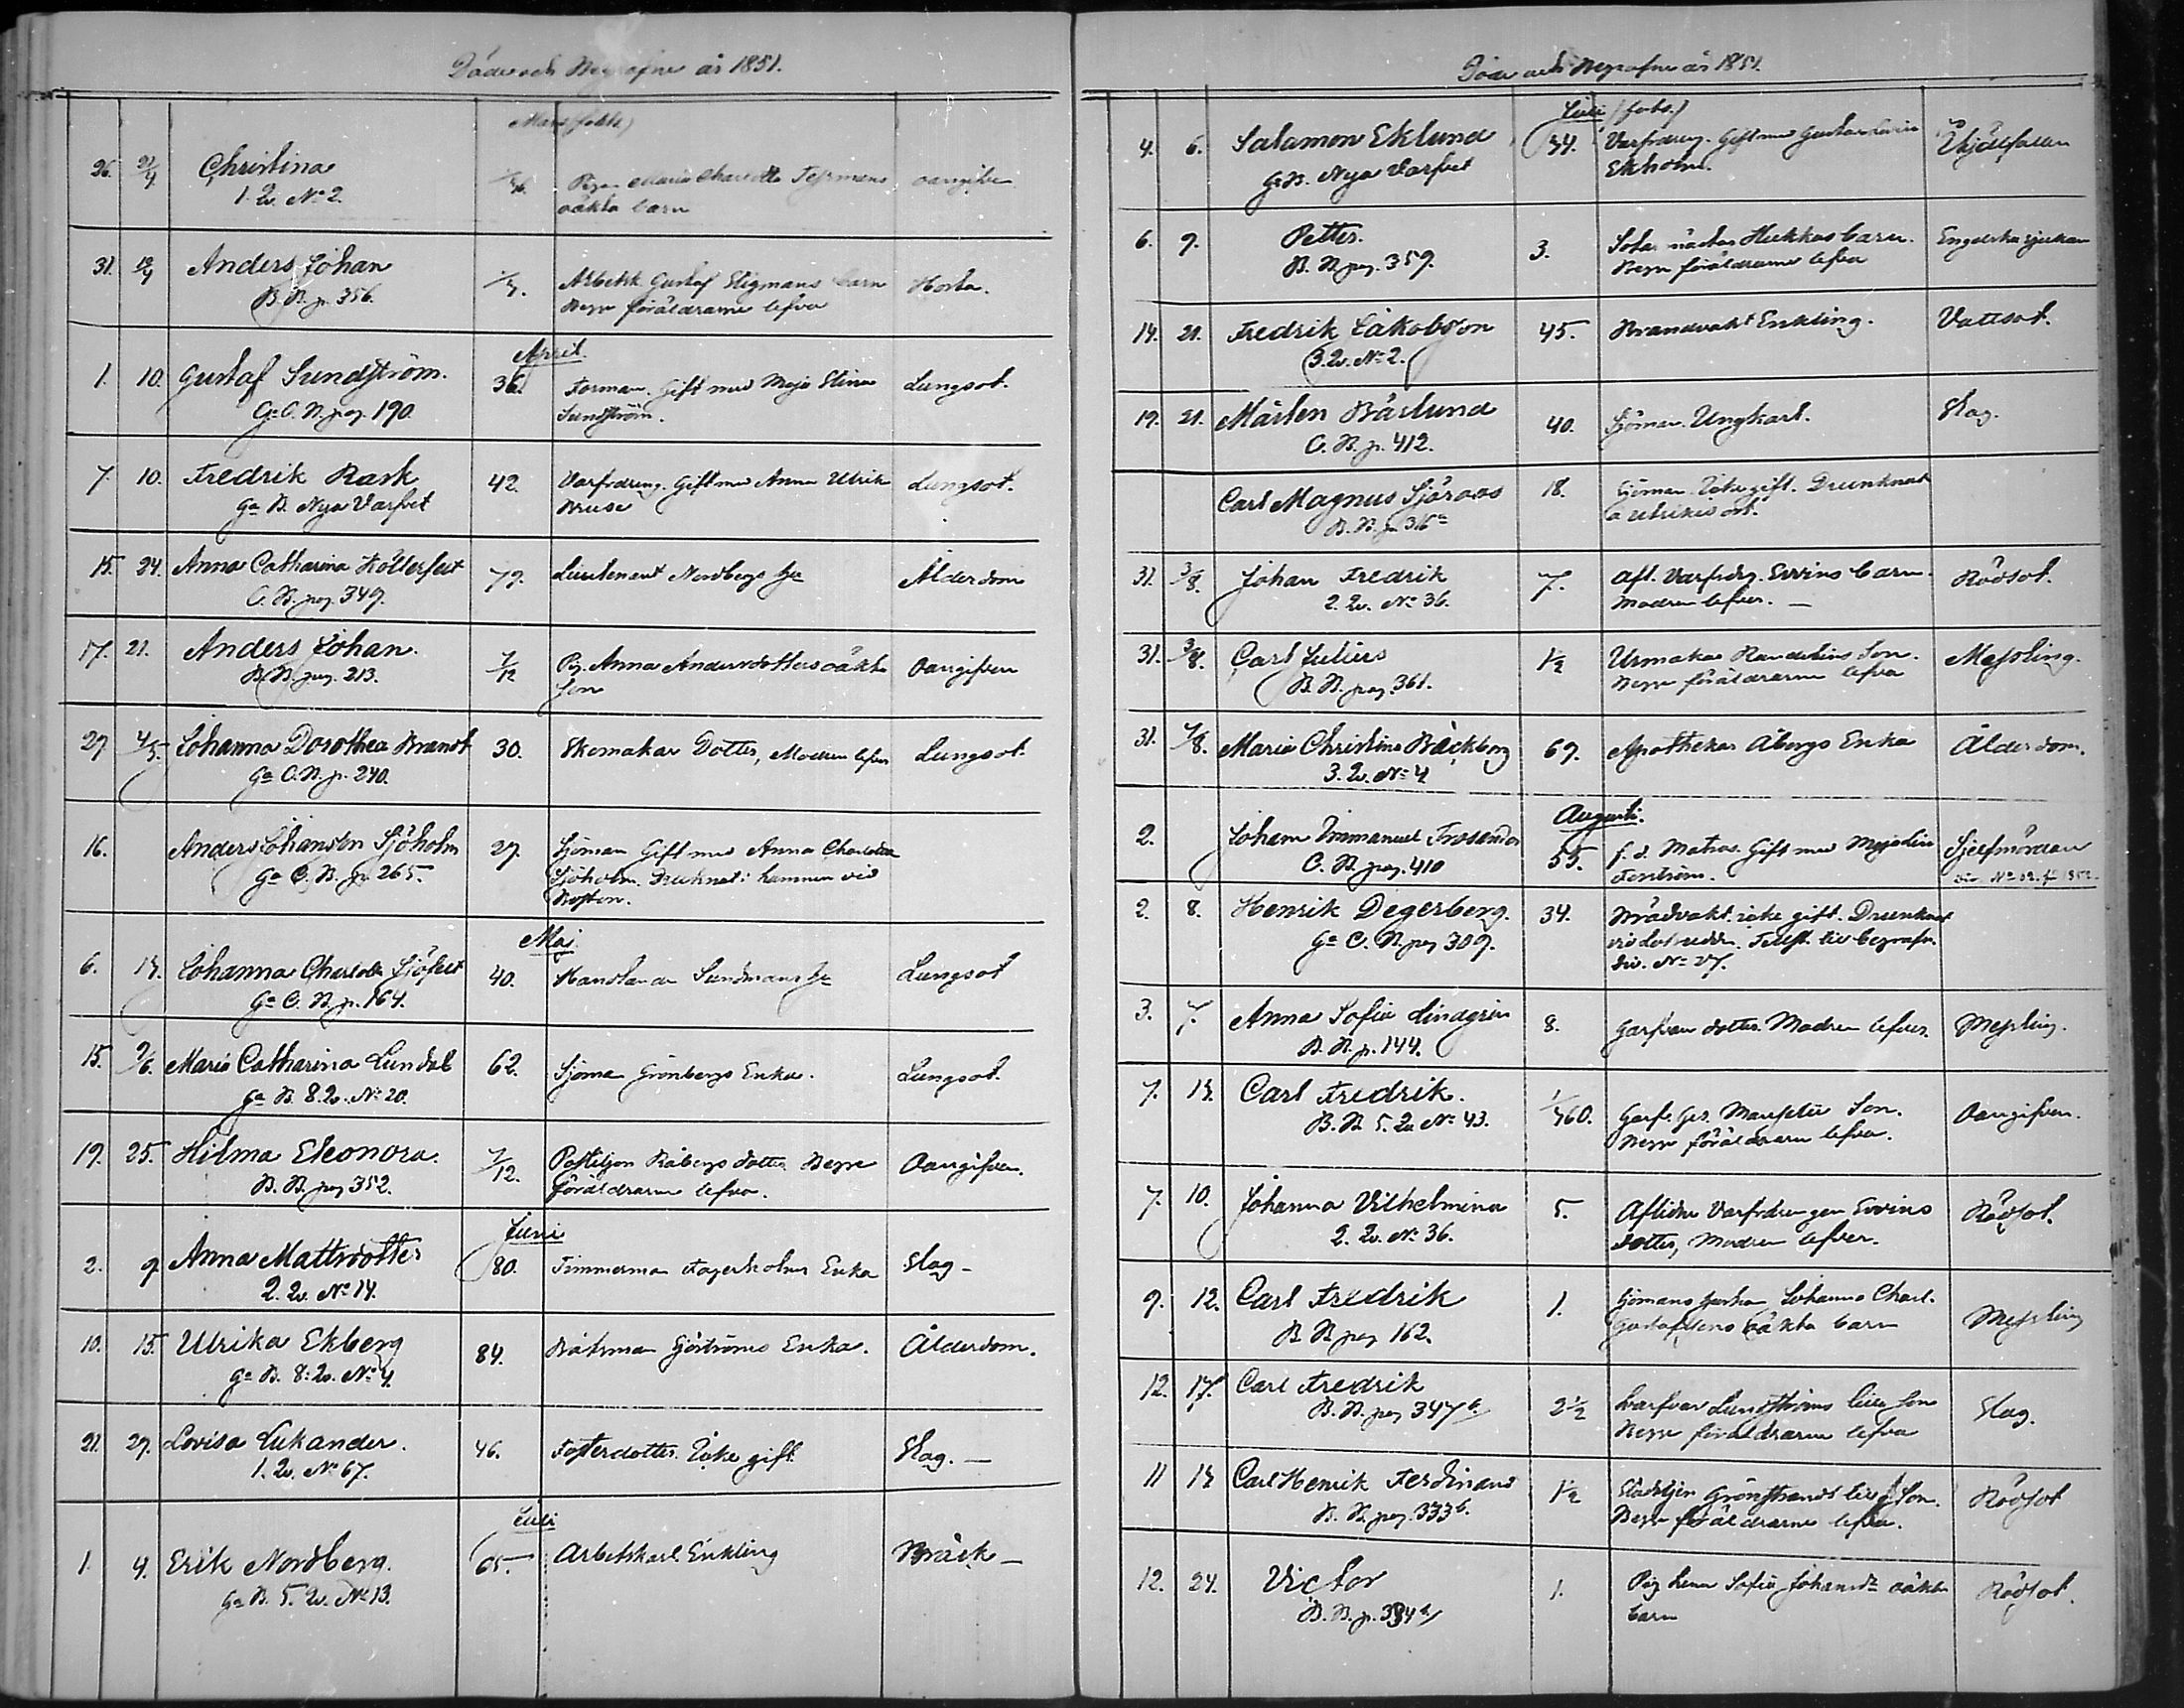 Döde och Begrafne år 1851.
Mars (forts.)
26. 21/4 Christina 1/36. Pigan Maria Charlotta oangifven
1 Qv. No 2. oäkta barn
31. 13/4 Anders Johan Arbetsk. Gustaf Stigmans barn Hosta.
B. B. p. 356. Begge föräldrarne lefva
April.
1. 10. Gustaf Sundström. 36. Forman. Gift med Maja Stina Lungsot.
Ga C. B. pag. 190. Sundström.
7. 10. Fredrik Rask 42. Varfvdreng. Gift med Anna Ulrik Lungsot.
Ga B. Nya Varfvet Kruse
15. 24. Anna Catharina 79. Lieutenant Nordbergs Ålderdom
C. B. pag. 349.
17. 21. Anders Johan. 7/12 Pig. Anna Andersdotters oäkta Oangifven
B. B. pag. 213. Son
29 4/5. Johanna Dorothea Brandt 30. Skomakar Dotter, Modren lefver Lungsot.
Ga C. B. p. 240.
16. Anders Johansson Sjöholm 29. Sjöman Gift med Anna Charlotta
Ga C. B. p. 265. Sjöholm. Druknat i hamnen vid
Boston.
Maj
6. 15. Johanna Charlotta 40. Handlanden Sundmans Lungsot
Ga C. B. p. 164.
15. 9/6. Maria Catharina Lundal 62. Sjöman Grönbergs Enka. Lungsot.
Ga B. 8. Qv. No 20.
19. 25. Hilma Eleonora. 7/12. Postiljon Råbergs dotter Begge Oangifven.
B. B. pag 352. föräldrarne lefva.
Juni
2. 9. Anna Mattsdotter 80. Timmerman Fagerholms Enka Slag -
2. Qv. No 14.
10. 15. Ulrika Ekberg 84. Båtsman Sjöströms Enka. Ålderdom.
Ga B. 8: Qv. No 4.
21. 29. Lovisa Lukander. 46. Fosterdotter. Icke gift Slag. -
1. Qv. No 67.
Juli
1. 4. Erik Nordberg. 65. Arbetskarl Enkling Bråck -
Ga B. 5. Qv. No 13.
Döde och Begrafne år 1851.
Juli (forts.)
4. 6. Salamon Eklund 34. Varfvdreng. Gift med Gustava Lovisa Ihjälfallen
Ga B. Nya Varfvet Ekholm.
6. 9. Petter. 3. barn. Engelska sjukan
B. B. pag. 359. Begge föräldrarne lefva
14. 21. Fredrik Jakobsson 45. Brandvakt Enkling. Vattsot.
3. Qv. No 2.
19. 21. Mårten Båslund 40. Sjöman. Ungkarl. Slag.
C. B. p. 412.
Carl Magnus Sjöroos 18. Sjöman. Icke gift. Drunknat
B. B. p. 36 å utrikes ort.
31. 3/8. Johan Fredrik 7. Afl. Varfvdrg. Ervins barn. Rödsot.
2. Qv. No 36. Modren lefver. -
31. 3/8. Carl Julius 1½ Urmakar Randelins Son. Messling.
B. B. pag. 361. Begge föräldrarne lefva
31. 7/8. Maria Christina Bäckberg 69. Apothekar Åbergs Enka Ålderdom.
3. Qv. No 4
Augusti.
2. Johan Immanuel 55. f. d. Matros. Gift med Sjelfmördare
C. B. pag. 410
2. 8. Henrik Degerberg. 34. icke gift. Drunknat
Ga C. B. pag 309. vid till begrafn.
div. No 27.
3. 7. Anna Sofia Lindgrén 8. Garfvare dotter. Modren lefver. Messling.
B. B. p. 144.
7. 13. Carl Fredrik. 1/360. Garfv. Ges. Son. Oangifven.
B. B. 5. Qv. No 43. Begge föräldrarne lefva.
7. 10. Johanna Vilhelmina 5. Aflidne Varfvdrengen Ervins Rödsot.
2. Qv. No 36. Dotter, Modren lefver.
9. 12. Carl Fredrik 1. Sjömans Johanna Charl. Messling
B. B. pag 162. oäkta barn
12. 17. Carl Fredrik 2½ Garfvar Lundströms lilla Son Slag.
B. B. pag 347 Begge föräldrarne lefva
11 13 Carl Henrik Ferdinand 1½ Grönstrands lilla Son. Rödsot
B. B. pag. 333 b. Begge föräldrarne lefva.
12. 24. Victor 1. Pig. Lena Sofia Johansdr oäkta Rödsot.
B. B. p. 334 barn